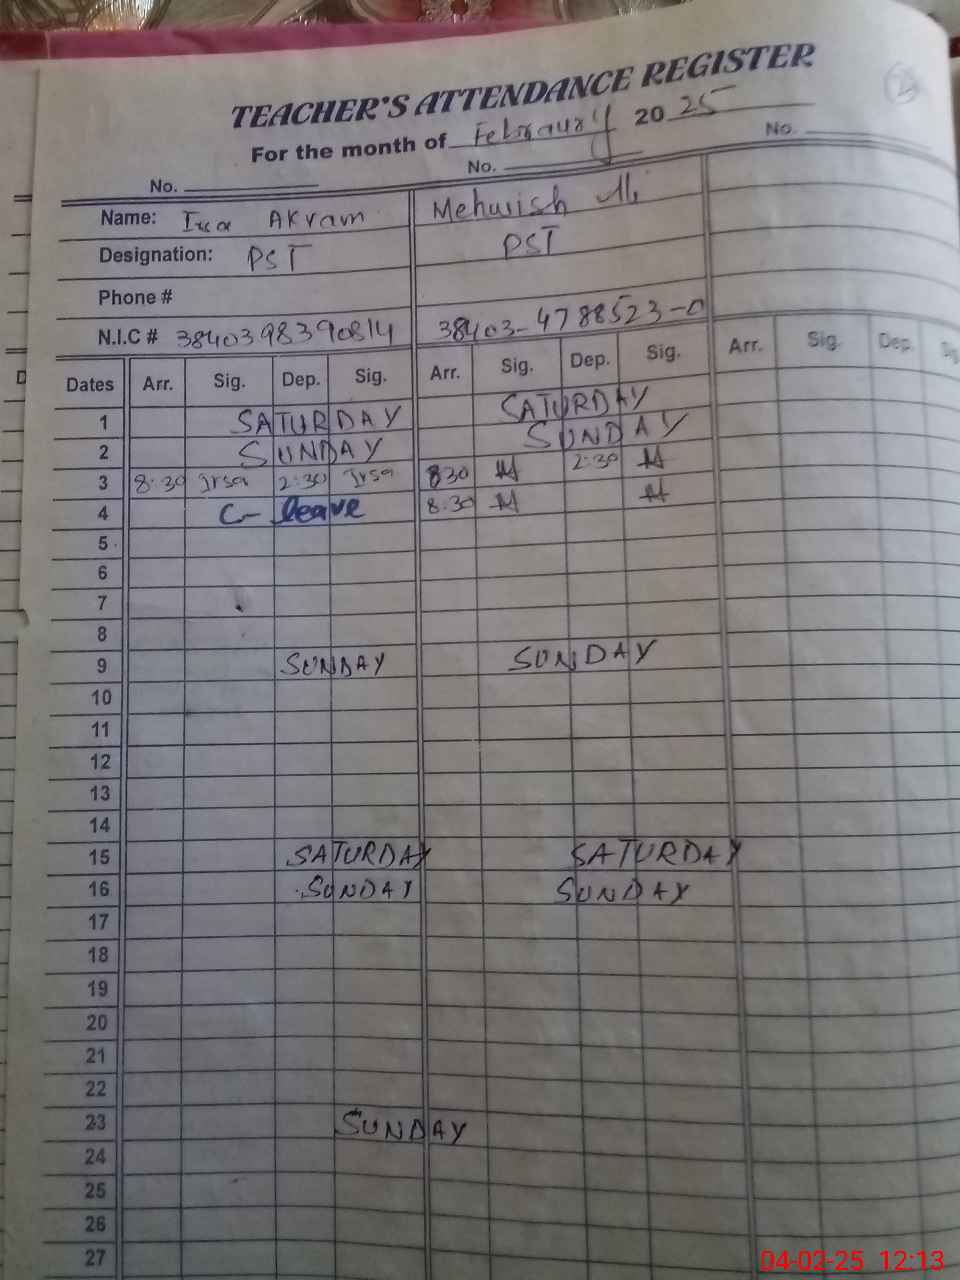 TEACHER'S ATTENDANCE REGISTER
For the month of Febraury 2025
No. No. No.
Name: Irsa Akram Mehwish Ali
Designation: PST PST
Phone #
N.I.C # 3840398390814 38403-4788523-0
Dates Arr. Sig. Dep. Sig. Arr. Sig. Dep. Sig. Arr. Sig. Dep.
1 SATURDAY SATURDAY
2 SUNDAY SUNDAY
3 8:30 Irsa 2:30 Irsa 830 2:30
4 C- leave 8:30
5
6
7
8
9 SUNDAY SUNDAY
10
11
12
13
14
15 SATURDAY SATURDAY
16 SUNDAY SUNDAY
17
18
19
20
21
22
23 SUNDAY
24
25
26
27
04-02-25 12:13